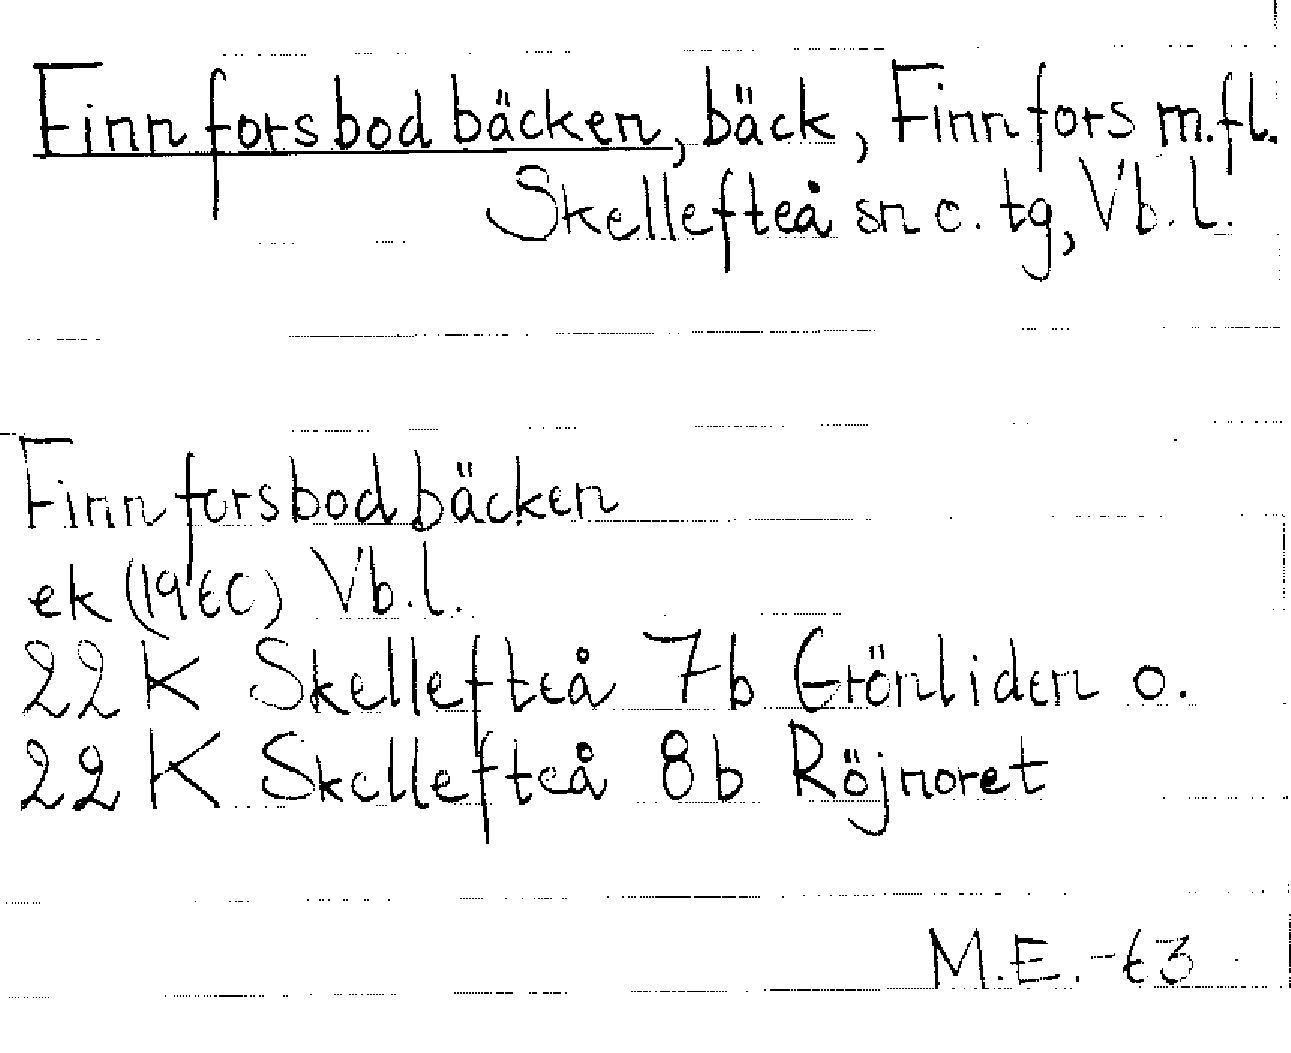 Finnforsbodbäcken, bäck, Finnfors m.fl.
Skellefteå sn o. tg, Vb.l.
Finnforsbodbäcken
ek (1960) Vb.l.
22 K Skellefteå 7b Grönliden o.
22 K Skellefteå 8b Röjnoret
M.E.-63